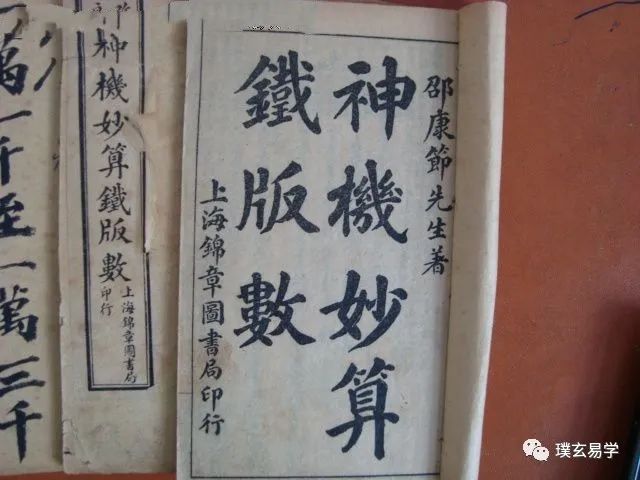 邵康節先生著
神機妙算
鐵版數
上海錦章圖書局印行
神機妙算鐵版數
上海錦章圖書局
印行
萬一千至一萬三千
璞玄易学